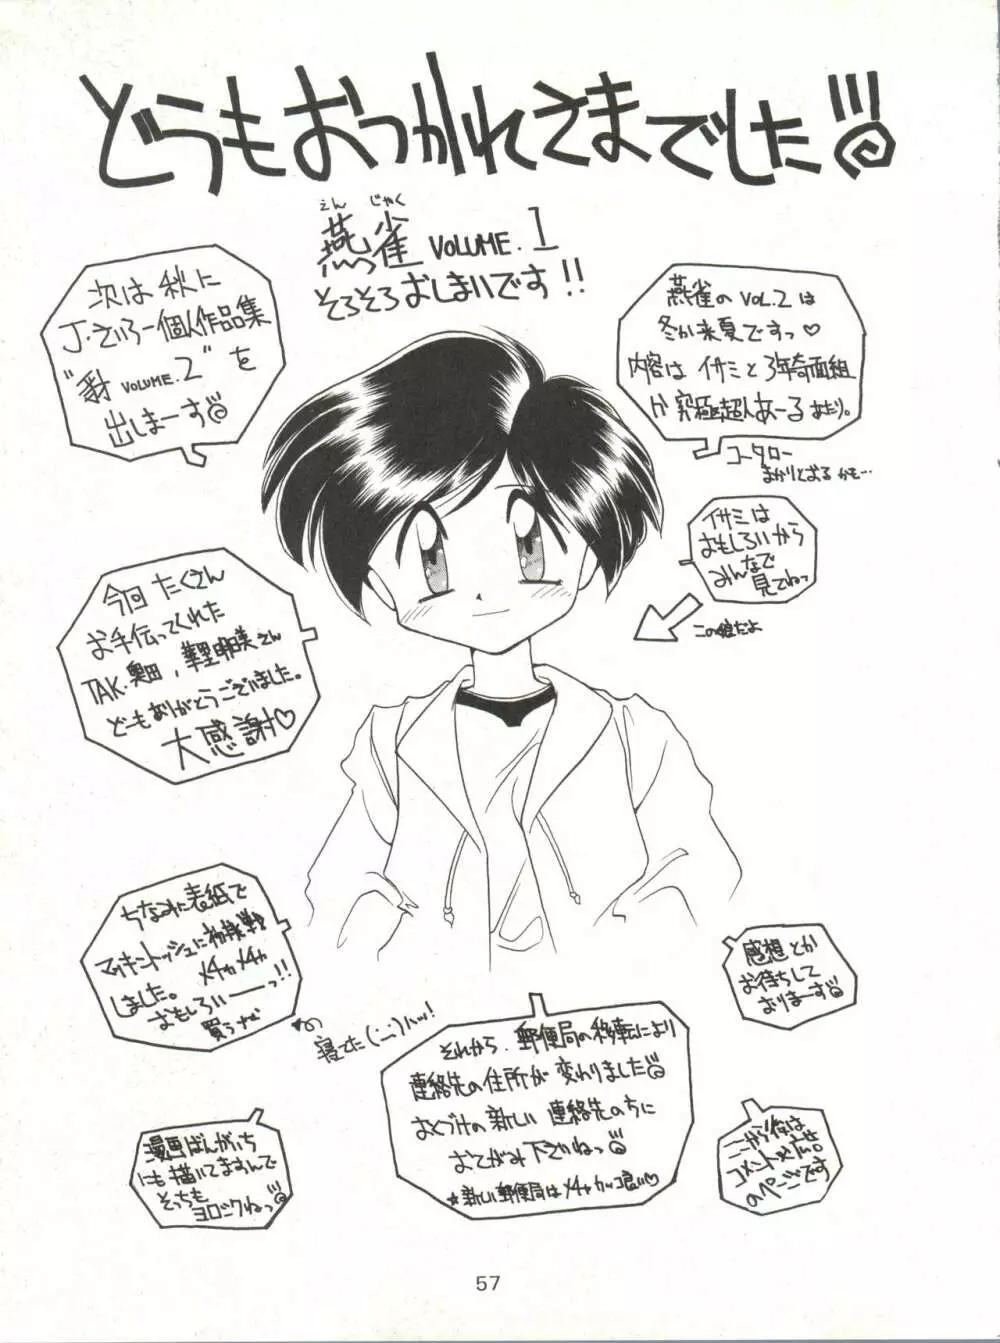 どうもおつかれさまでした
えん じゃく
燕雀 VOLUME.1
そろそろおしまいです!!
燕雀のVOL.2は
冬か来夏ですっ♡
内容はイサミと3年奇面組
か究極超人あ〜るあたり。
コータロー
まかりとおるかも…
次は秋に
J・さいろー個人作品集
VOLUME.2”を
出しまーす
イサミは
おもしろいから
みんなで
見てねっ
この娘だよ
今回たくさん
お手伝ってくれた
TAK.奥田、華里明美さん
どーもありがとうございました。
大感謝♡
ちなみに表紙で
マッキントッシュに初挑戦
しました。メチャメチャ
おもしろいーーっ!!
買うぞ
感想とか
お待ちして
おりまーす
それから、郵便局の移転により
連絡先の住所が変わりました
おくづけの新しい連絡先のちに
おてがみ下さいねっ
★新しい郵便局はメチャカッコ良い♡
漫画ばんがいち
にも描いてますんで
そっちも
ヨロシクねっ
こっから後は
コメントと広告
のページです
57